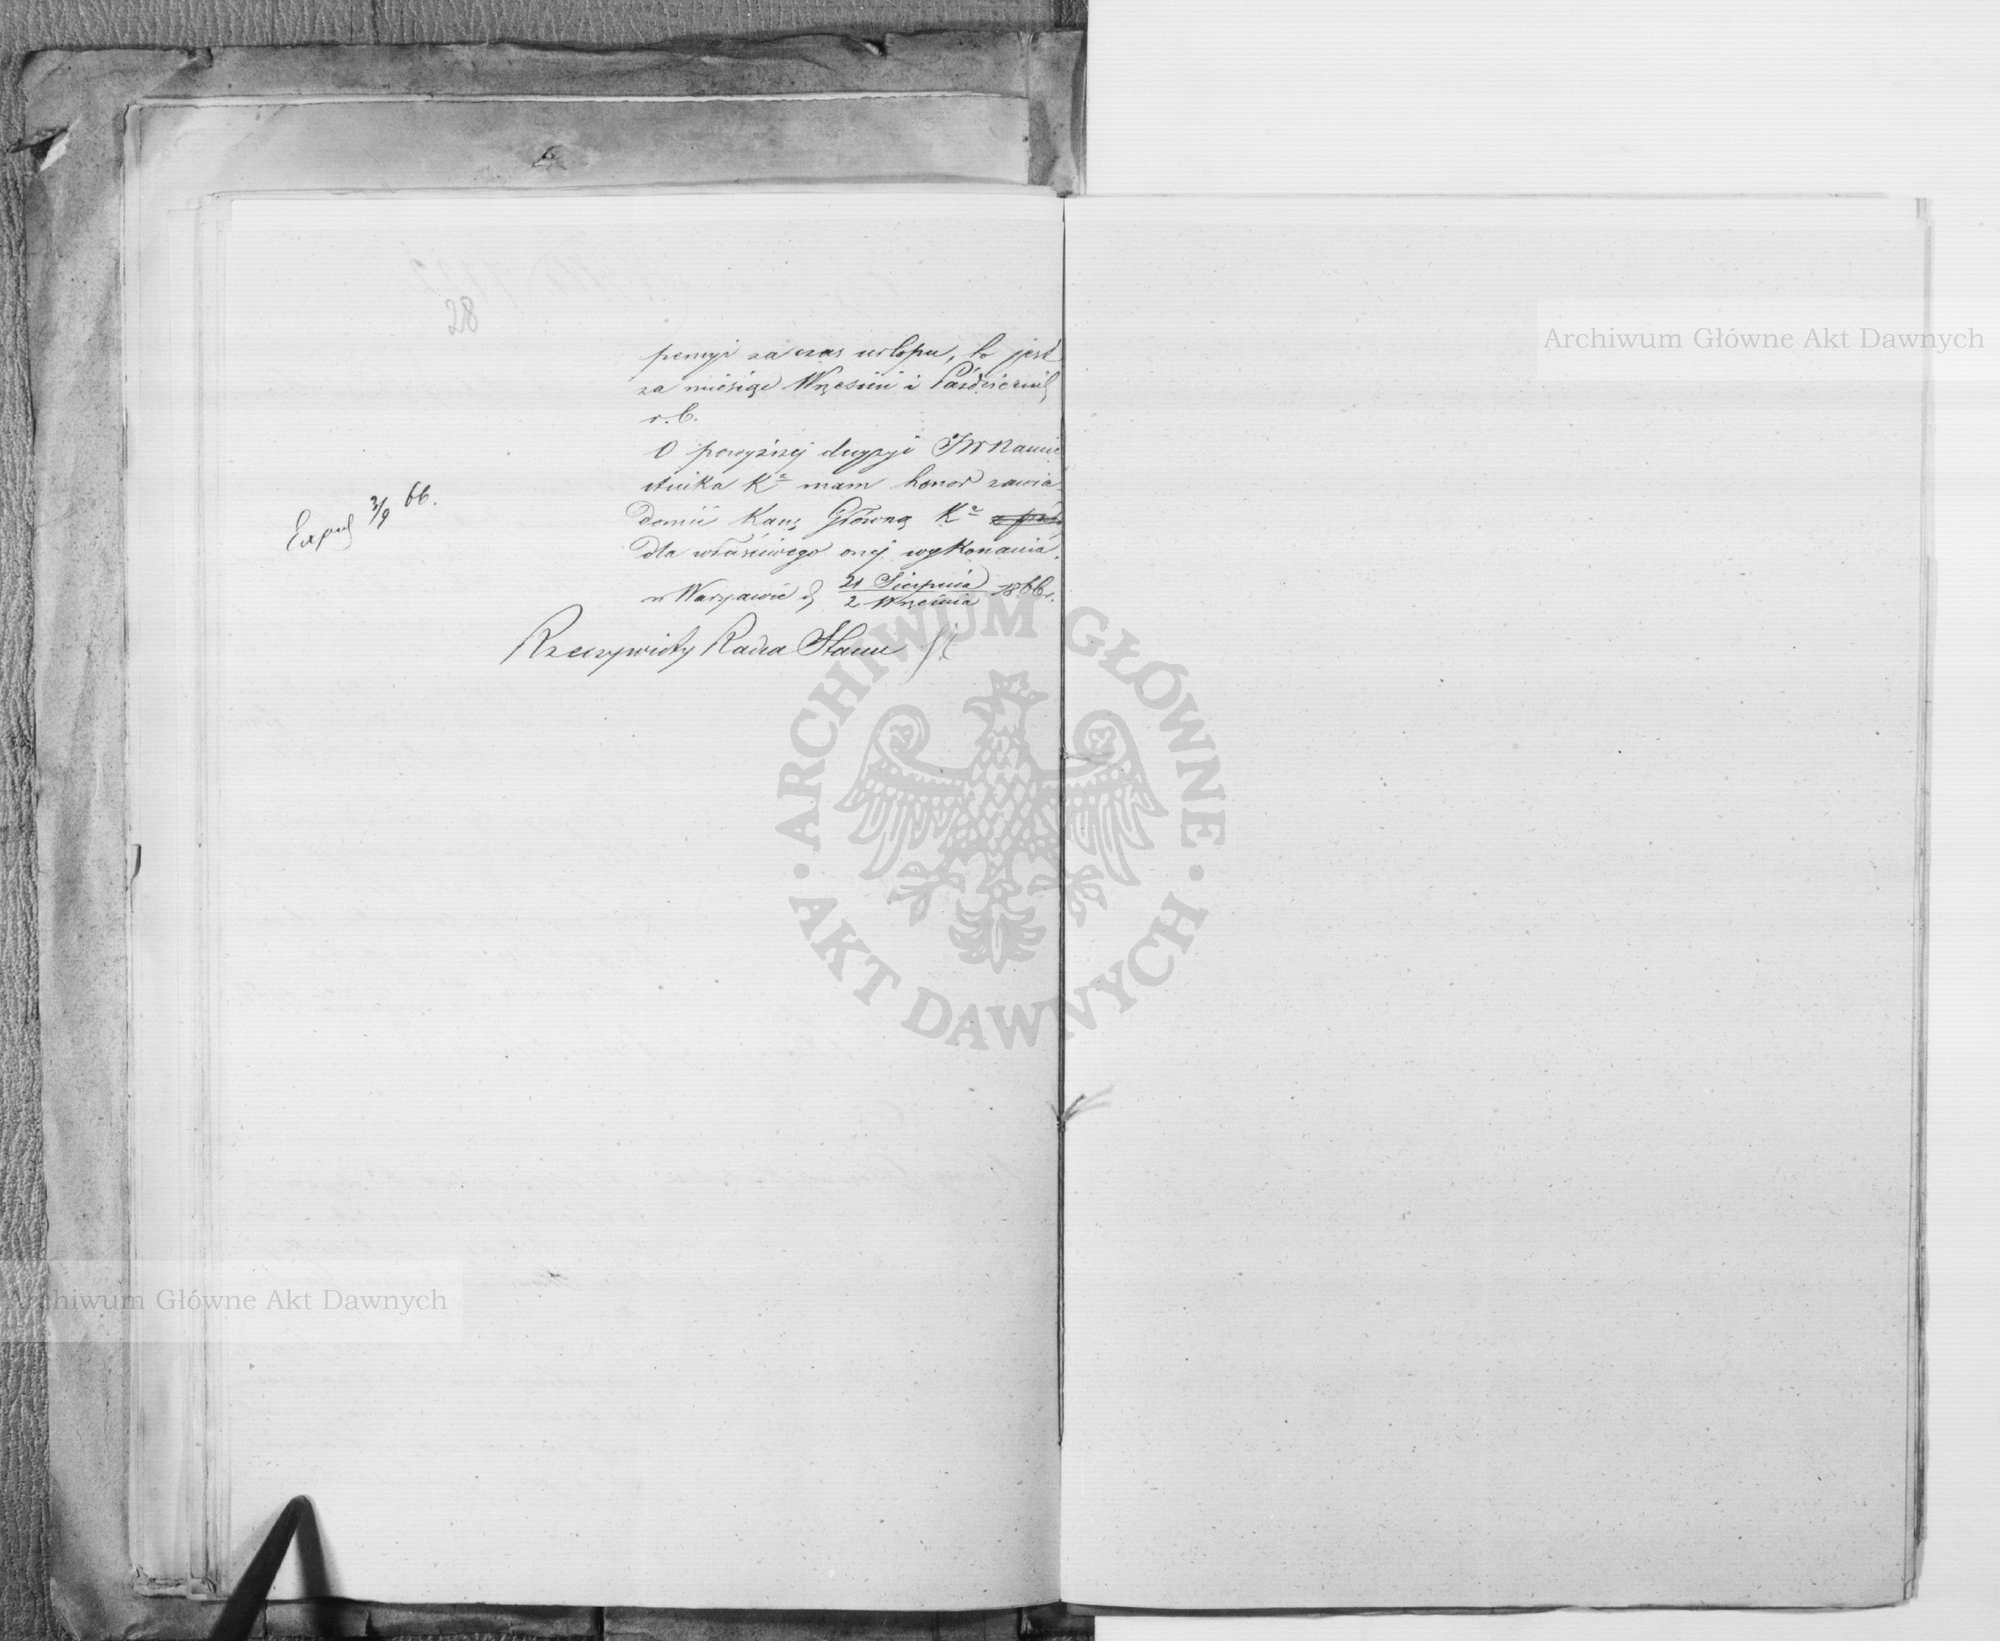 28
pensyi za czas urlopu, to jest
za miesiąc Wrzesień i Październik
r. b.
O powyższej decyzyi JW Namie
stnika Kª mam honor zawia
domić Kanę Główną Kª
dla właściwego onej wykonania.
w Warszawie d. 21 Sierpnia / 2 Września 1866 r.
Rzeczywisty Radca Stanu
Exped 3/9 66.
Archiwum Główne Akt Dawnych
ARCHIWUM GŁÓWNE
AKT DAWNYCH
Archiwum Główne Akt Dawnych